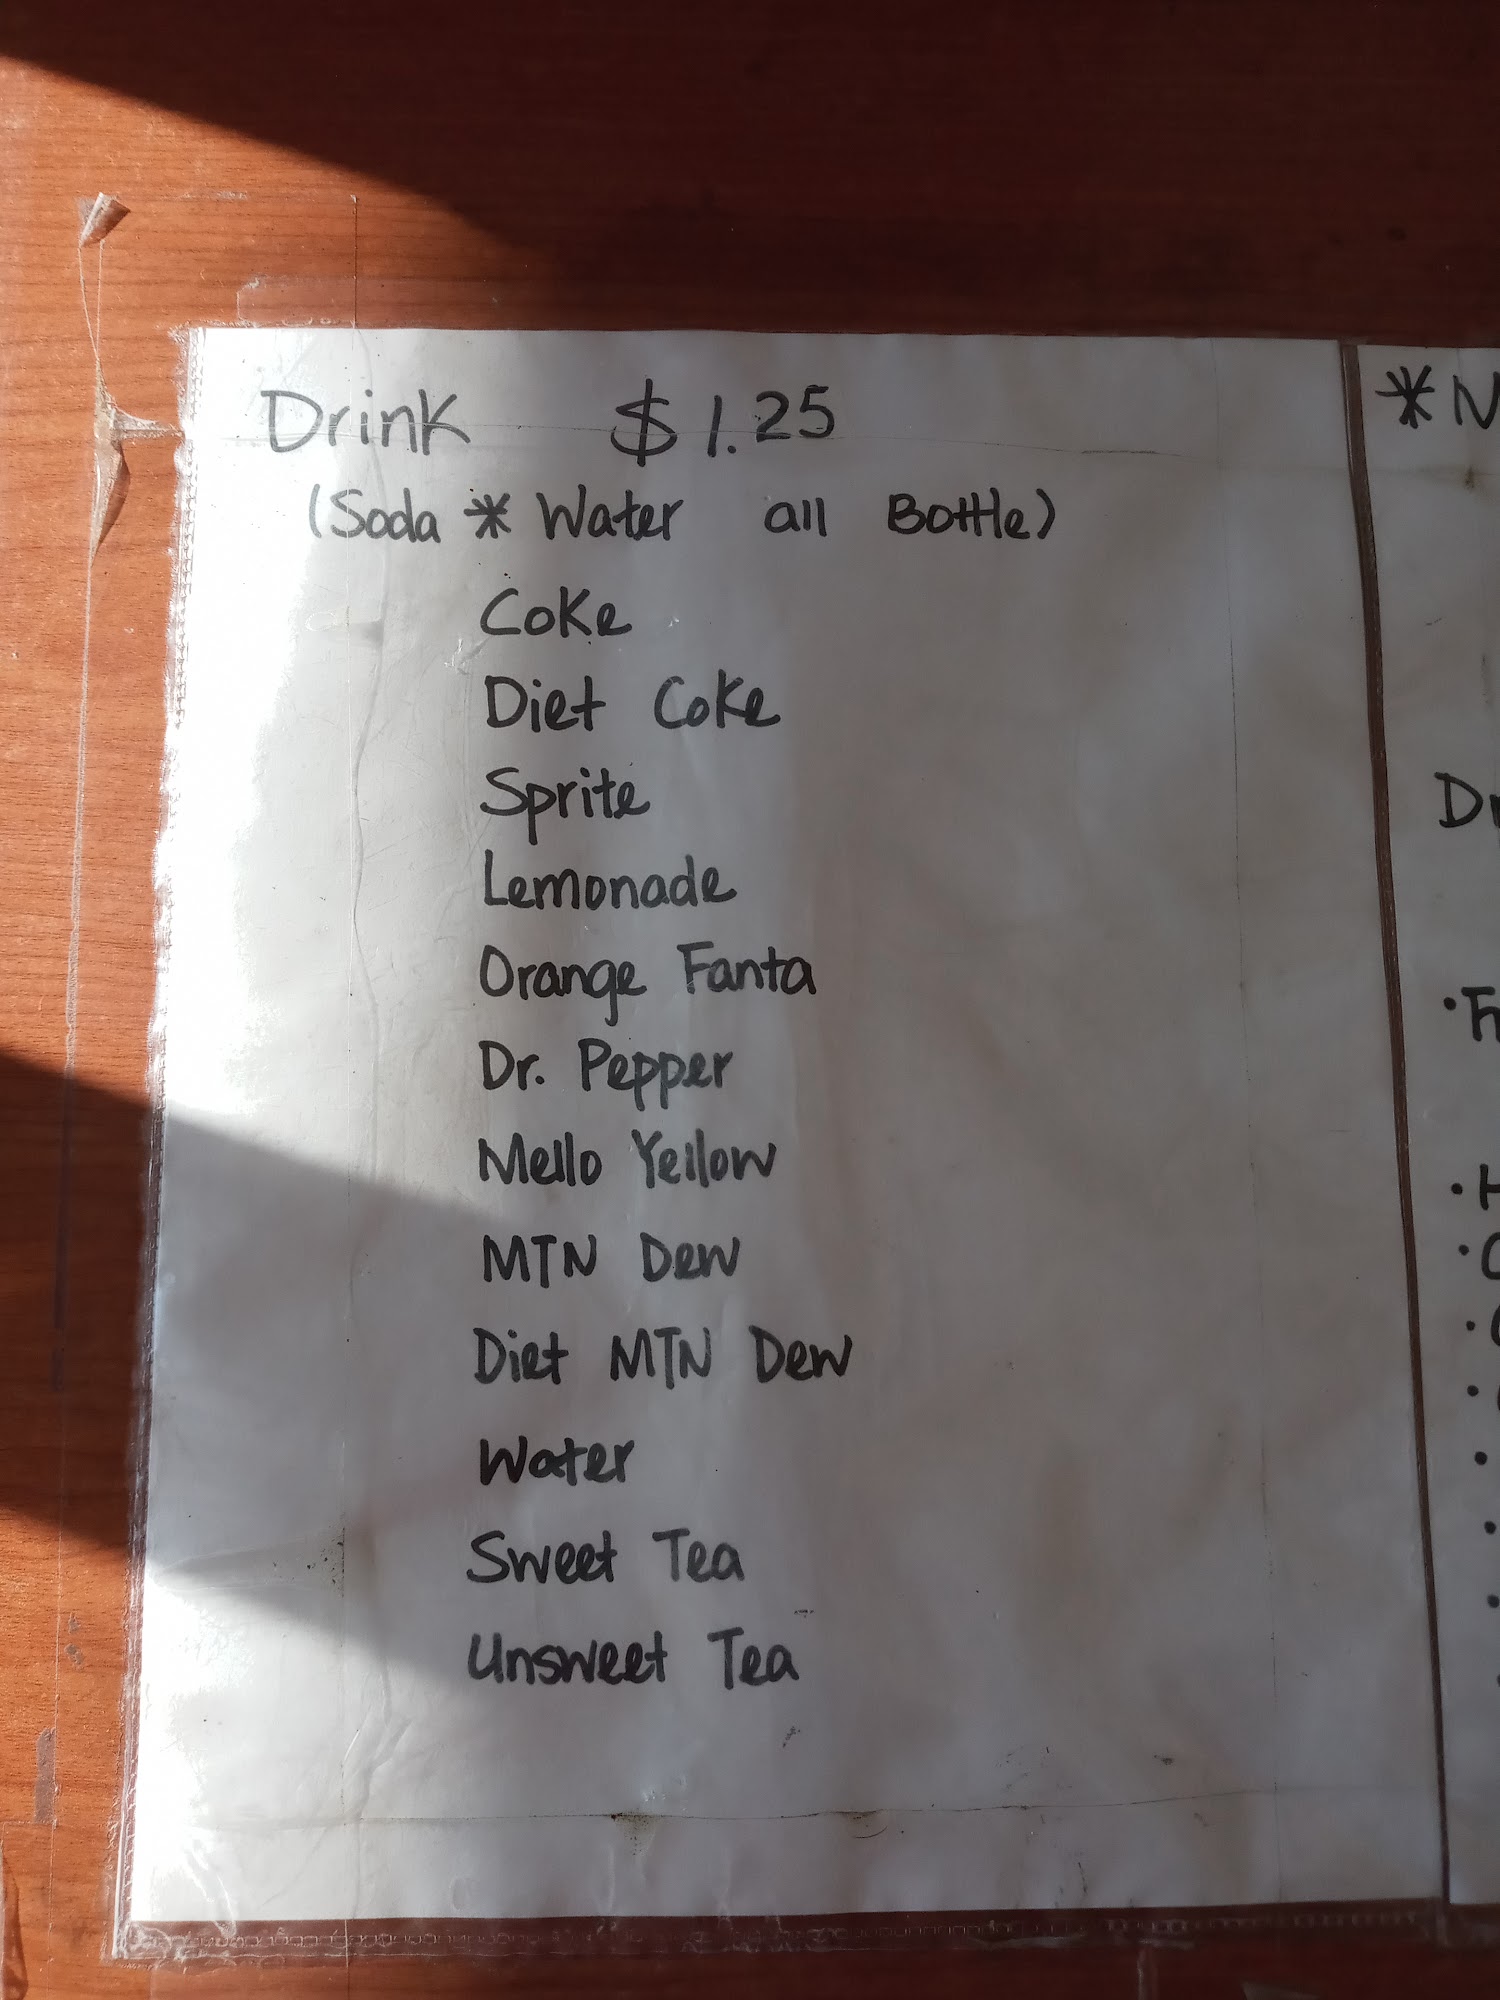 Drink $1.25
(Soda * Water all Bottle)
Coke
Diet Coke
Sprite
Lemonade
Orange Fanta
Dr. Pepper
Mello Yellow
MTN Dew
Diet MTN Dew
Water
Sweet Tea
Unsweet Tea